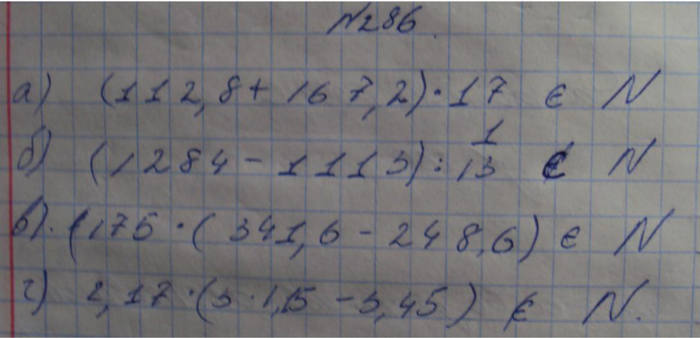 №286.
а) (112,8+167,2)·17 ∈ N
1
б) (1284-1113):13 ∈ N
в). (175·(341,6-248,6) ∈ N
г) 2,17·(3·1,15-3,45) ∉ N.